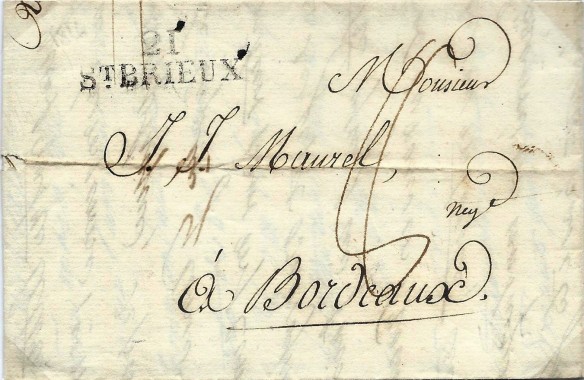 21
ST BRIEUX
Monsieur
J. J. Maurel,
Negt
à Bordeaux.